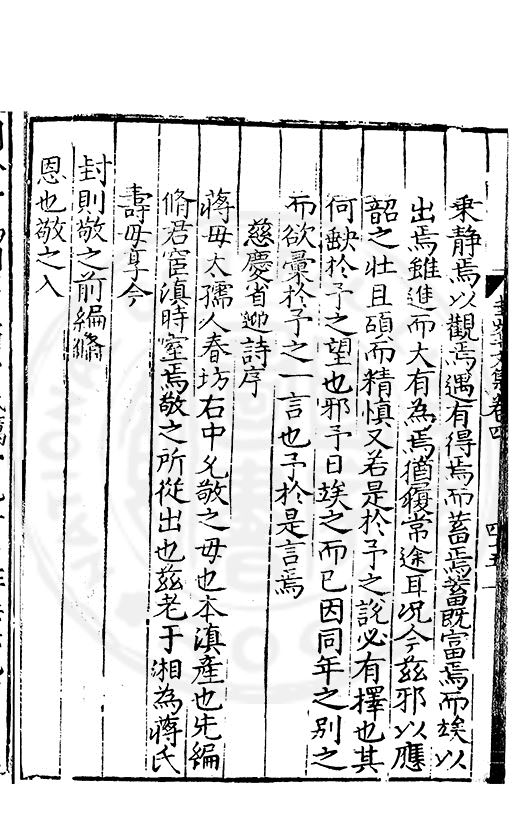 秉静焉以觀焉遇有得焉而蓄焉蓄既富焉而竢以
出焉雖進而大有為焉猶覆常途耳况今茲邪以應
韶之壯且碩而精慎又若是於予之説必有擇也其
何歉於予之望也邪予曰竢之而已因同年之别之
而欲彚於予之一言也予於是言焉
慈慶省迎詩序
蔣母太孺人春坊右中允敬之母也本滇產也先編
脩君宦滇時室焉敬之所從出也茲老于湘為蔣氏
壽母享今
封則敬之前編脩
恩也敬之入
文集卷四
四五